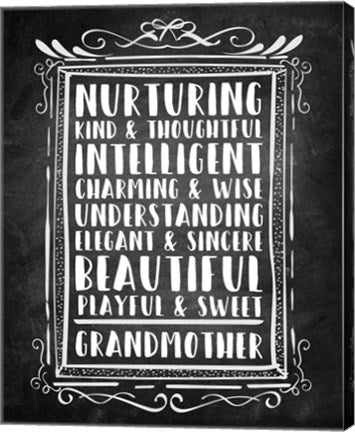 NURTURING
KIND & THOUGHTFUL
INTELLIGENT
CHARMING & WISE
UNDERSTANDING
ELEGANT & SINCERE
BEAUTIFUL
PLAYFUL & SWEET
GRANDMOTHER